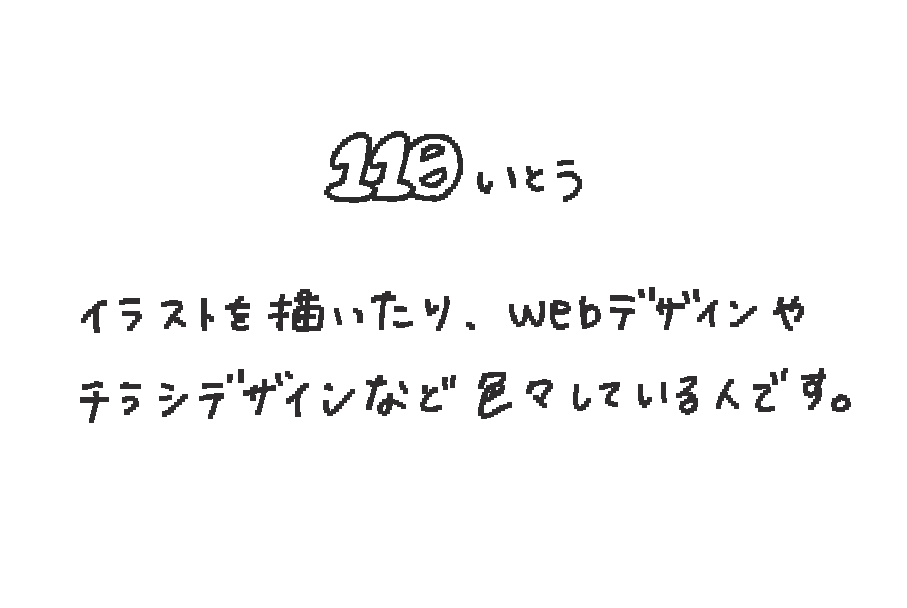 118 いとう
イラストを描いたり、webデザインや
チラシデザインなど色々している人です。